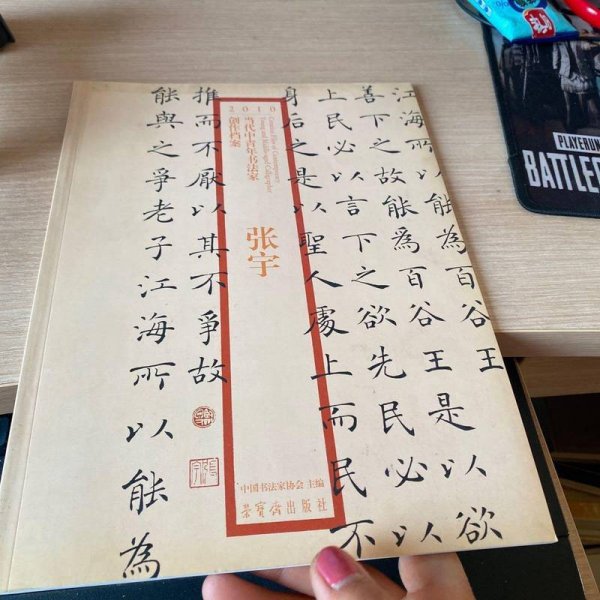 江海所以能為百谷王
善下之故能為百谷王是以欲
上民必以言下之欲先民必以
身后之是以聖人處上而民不
推而不厭以其不爭故
能與之爭老子江海所以能為
2010
Creation Files of Contemporary
Young and Middle-aged Calligrapher
当代中青年书法家
创作档案
张宇
中国书法家协会 主编
荣宝斋出版社
PLAYERUN
BATTLE